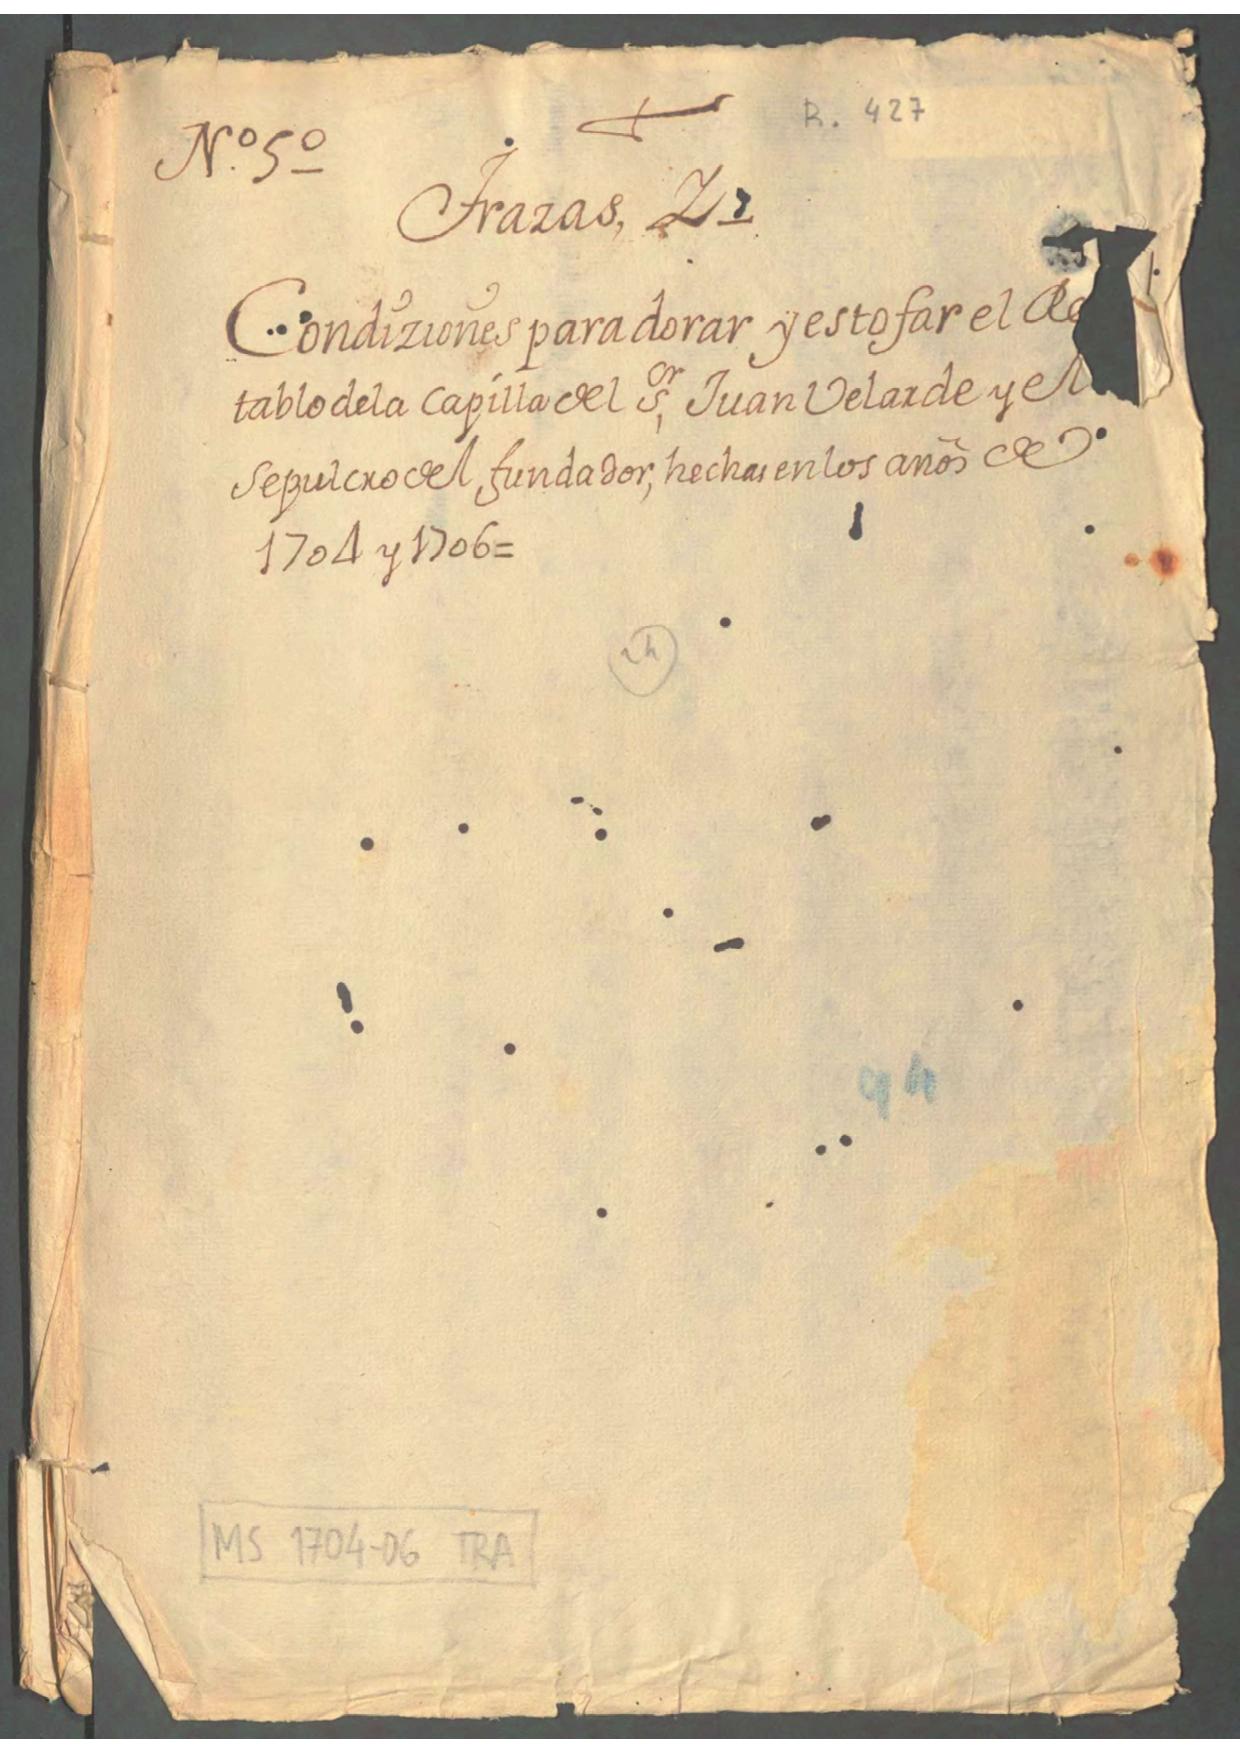 R. 427
N.º 5º
Trazas,
Condiziones para dorar y estofar el Re
tablo dela Capilla del Sʳ, Juan Velarde y el
sepulcro del fundador, hechas en los años de
1704 y 1706=
24
94
MS 1704-06 TRA